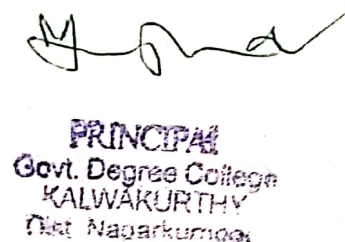 PRINCIPAL
Govt. Degree College
KALWAKURTHY
Dist. Nagarkurnool